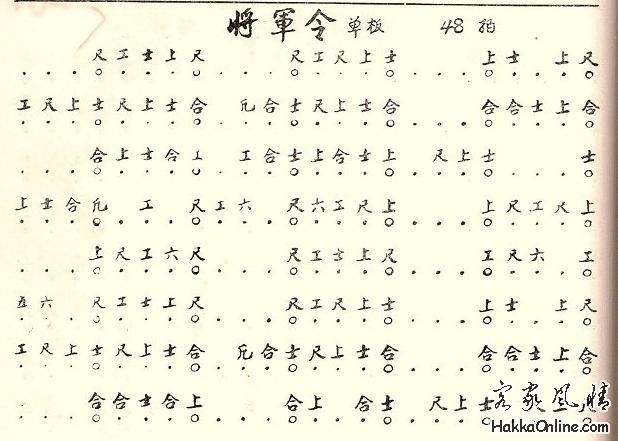 將軍令 单板 48 拍
尺 上 士 上 士 上 尺 工 尺 尺 上 士 工 尺
合 上 士 合 合 合 士 上 尺 士 合 凡 合 士 上 尺 士 上 尺 工
士 士 上 尺 上 士 合 上 士 合 工 工 合 士 上 合
上 尺 工 尺 上 上 尺 工 六 尺 工 六 尺 工 凡 合 士 上
工 六 尺 工 尺 上 士 工 尺 尺 六 工 尺 上
尺 上 士 上 士 上 尺 工 尺 尺 工 士 工 尺 六 五
合 上 士 合 合 合 士 上 尺 士 合 凡 合 士 上 尺 士 上 尺 工
士 上 尺 士 合 上 合 上 合 士 合 合
客家風情
HakkaOnline.com